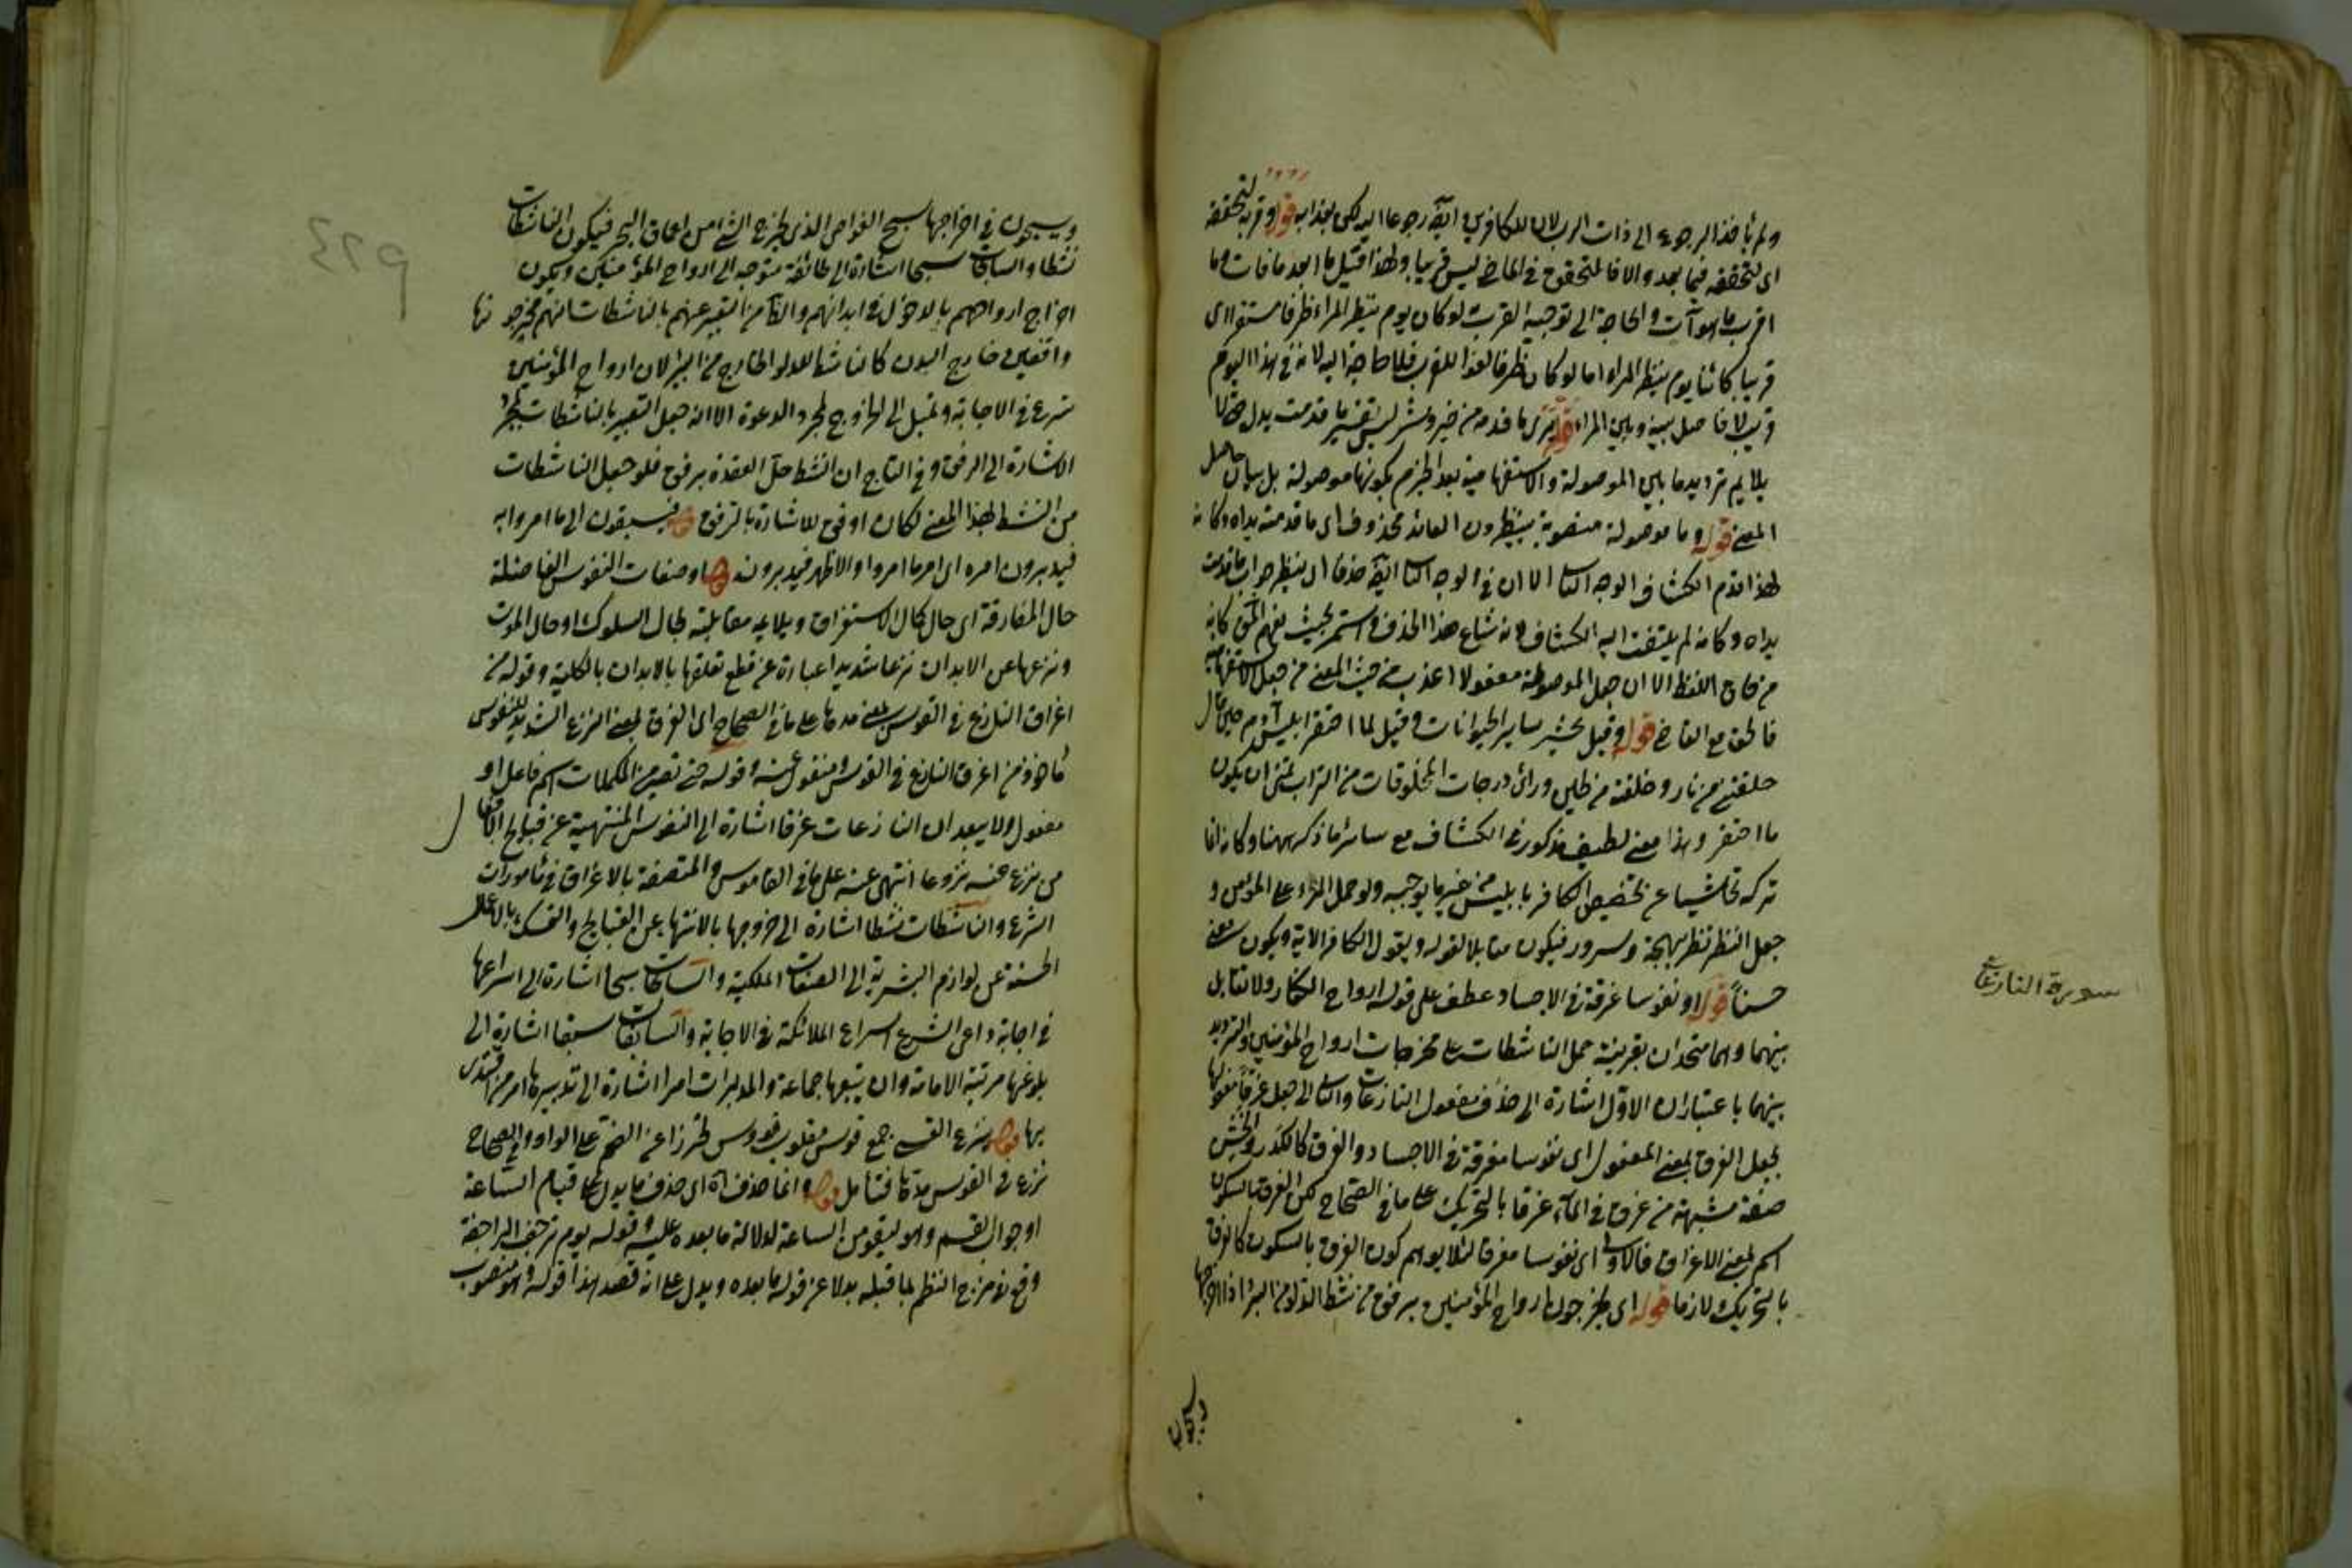 ولم يأخذ الرجوع الى ذات الرب لان للكافرين ايضا رجوعا اليه لكن بعذابه قوله وقربه لتحققه
اى لتحققه فيما بعد والا فالمتحقق في الماضي ليس قريبا ولهذا قيل ما ابعد ما فات وما
اقرب ما هو آت والحاجة الى توجيه القرب لو كان يوم ينظر المراء ظرفا مستقرا اى
قريبا كائنا يوم ينظر المراء اما لو كان ظرفا لغوا للقرب فلا حاجة اليه لانه في هذا اليوم
قريب لا فاصل بينه وبين المراء قوله يرى ما قدمه من خير وشر ليس تفسير ما قدمت يداه حتى لا
يلايم ترديد ما بين الموصولة والاستفهامية بعد الجزم بكونها موصولة بل بيان حاصل
المعنى قوله وما موصولة منصوبة بينظرون العائد محذوف اى ما قدمته يداه وكانه
لهذا قدم الكشاف الوجه الثانى الا ان في الوجه الثانى ايضا حذفا اى ينظر جواب ما قدمت
يداه وكانه لم يلتفت اليه الكشاف لانه شاع هذا الحذف واستمر بحيث يفهم المحذوف كانه
من حاق اللفظ الا ان جعل الموصولة مفعولا اعذب من حيث المعنى من جعل الاستفهامية
فالحق مع القاضي قوله وقيل يحشر ساير الحيوانات وقيل لما احتقر ابليس آدم حين قال
خلقتني من نار وخلقته من طين وراى درجات المخلوقات من التراب تمنى ان يكون
ما احتقر وهذا معنى لطيف مذكور في الكشاف مع سائر ما ذكر ههنا وكانه انما
تركه تحاشيا عن تخصيص الكافر بابليس من غير ما يوجبه ولو حمل المراء على المؤمن و
جعل النظر نظر بهجة وسرور فيكون مقابلا لقوله ويقول الكافر الآية ويكون معنى
حسناً قوله او نفوسا غرقة في الاجساد عطف على قوله ارواح الكفار ولا تقابل
بينهما وهما متحدان بقرينة حمل الناشطات على مخرجات ارواح المؤمنين والترديد
بينهما باعتبار ان الاول اشارة الى حذف مفعول النازعات والثانى الى جعل غرقا مفعولها
بجعل الغرق بمعنى المفعول اى نفوسا مغرقة في الاجساد والغرق كالكدر والخشن
صفة مشبهة من غرق في الماء غرقا بالتحريك على ما في الصحاح لكن الغرق بالسكون
اسم بمعنى الاغراق فالاولى اى نفوسا مغرقا لئلا يوهم كون الغرق بالسكون كالغرق
بالتحريك لازما قوله اى يخرجون ارواح المؤمنين برفق من نشط الدلو من البئر اذا اخرجها
ويسبحون
سورة النازعات
٤٢٩
ويسبحون في اخراجها سبح الغواص الذى يخرج الشئ من اعماق البحر فيكون الناشطات
نشطا والسابحات سبحا اشارة الى طائفة متوجهة الى ارواح المؤمنين ويكون
اخراج ارواحهم بالدخول في ابدانهم والفائدة من التعبير عنهم بالناشطات انهم يخرجونها
واقفين خارج البدن كالناشط للدلو الخارج من البئر لان ارواح المؤمنين
تسرع في الاجابة وتميل الى الخروج بمجرد الدعوة الا انه جعل التعبير بالناشطات بمجرد
الاشارة الى الرفق وفي التاج ان النشط حل العقدة برفق فلو جعل الناشطات
من النشط بهذا المعنى لكان اوفق للاشارة بالرفق قوله فيسبقون الى ما امروا به
فيدبرون امره اى امر ما امروا والاظهر فيدبرونه قوله او صفات النفوس الفاضلة
حال المفارقة اى حال كمال الاستغراق ويلايمه مقابلته بحال السلوك او حال الموت
ونزعها عن الابدان نزعا شديدا عبارة عن قطع تعلقها بالابدان بالكلية وقوله من
اغراق النازع في القوس بمعنى مدها على ما في الصحاح اى الغرق بمعنى النزع الشديد للنفوس
مأخوذ من اغراق النازع في القوس ومنقول عنه وقوله حتى تصير من المكملات اسم فاعل او
مفعول ولا يبعد ان النازعات غرقا اشارة الى النفوس المنتهية عن قبايح الافعال
من نزع عنه نزوعا انتهى عنه على ما في القاموس والمتصفة بالاغراق في مأمورات
الشرع والناشطات نشطا اشارة الى خروجها بالانتهاء عن القبايح والتمسك بالاعمال
الحسنة عن لوازم البشرية الى الصفات الملكية والسابحات سبحا اشارة الى اسراعها
في اجابة داعى الشرع اسراع الملائكة في الاجابة والسابقات سبقا اشارة الى
بلوغها مرتبة الامامة وان يتبعها جماعة والمدبرات امرا اشارة الى تدبيرها امر من اقتدى
بها قوله ينزع القسى جمع قوس مقلوب قووس تحرزا عن الضمة على الواو وفي الصحاح
نزع في القوس مدها فتأمل قوله وانما حذف اه اى حذف ما يدل على قيام الساعة
او جواب القسم وهو ليقومن الساعة لدلالة ما بعده عليه وقوله يوم ترجف الراجفة
وقع في مزج النظم بما قبله بدلا عن قوله ما بعده ويدل على انه قصد هذا قوله وهو منصوب